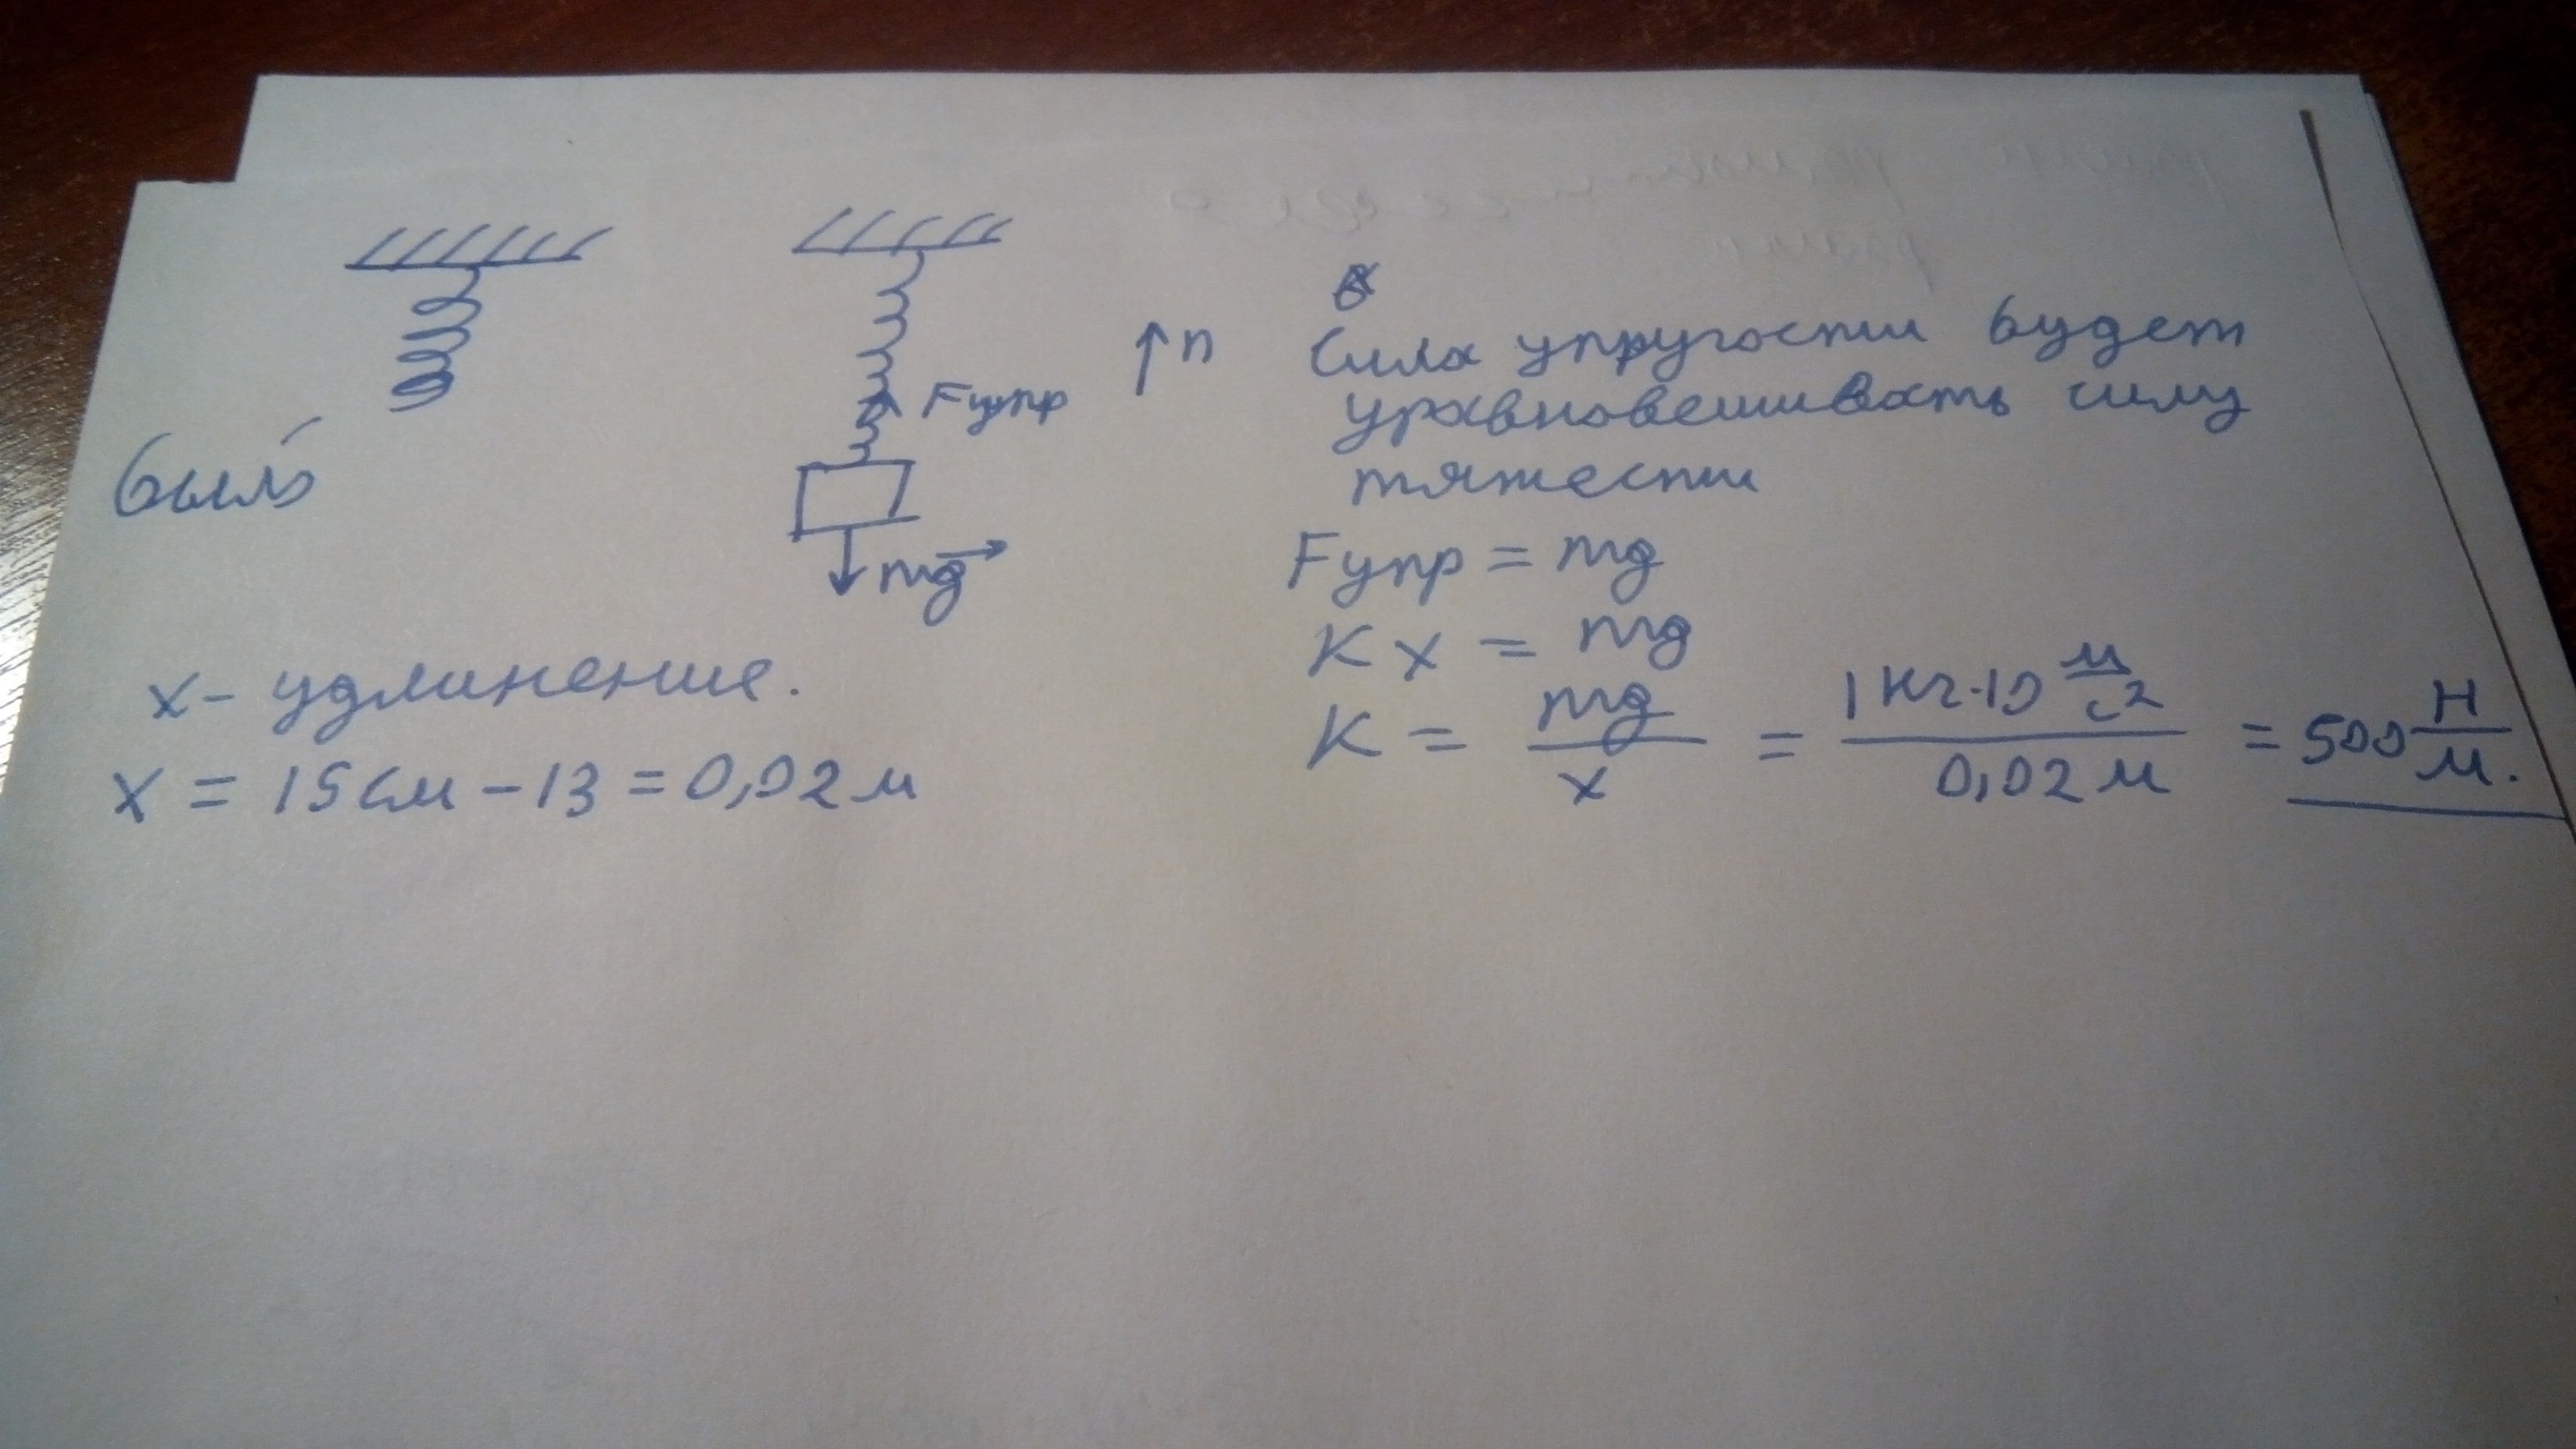 было
Fупр
mg
n
Сила упругости будет
уравновешивать силу
тяжести
Fупр = mg
Kx = mg
K = mg/x = 1кг·10 м/с²/0,02м = 500 Н/м.
x - удлинение.
x = 15см - 13 = 0,02м